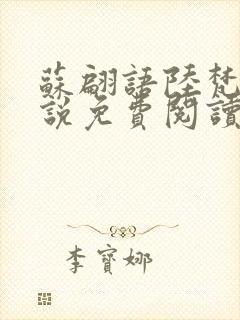 蘇翩語陸梵
說免費閱讀
李寶娜